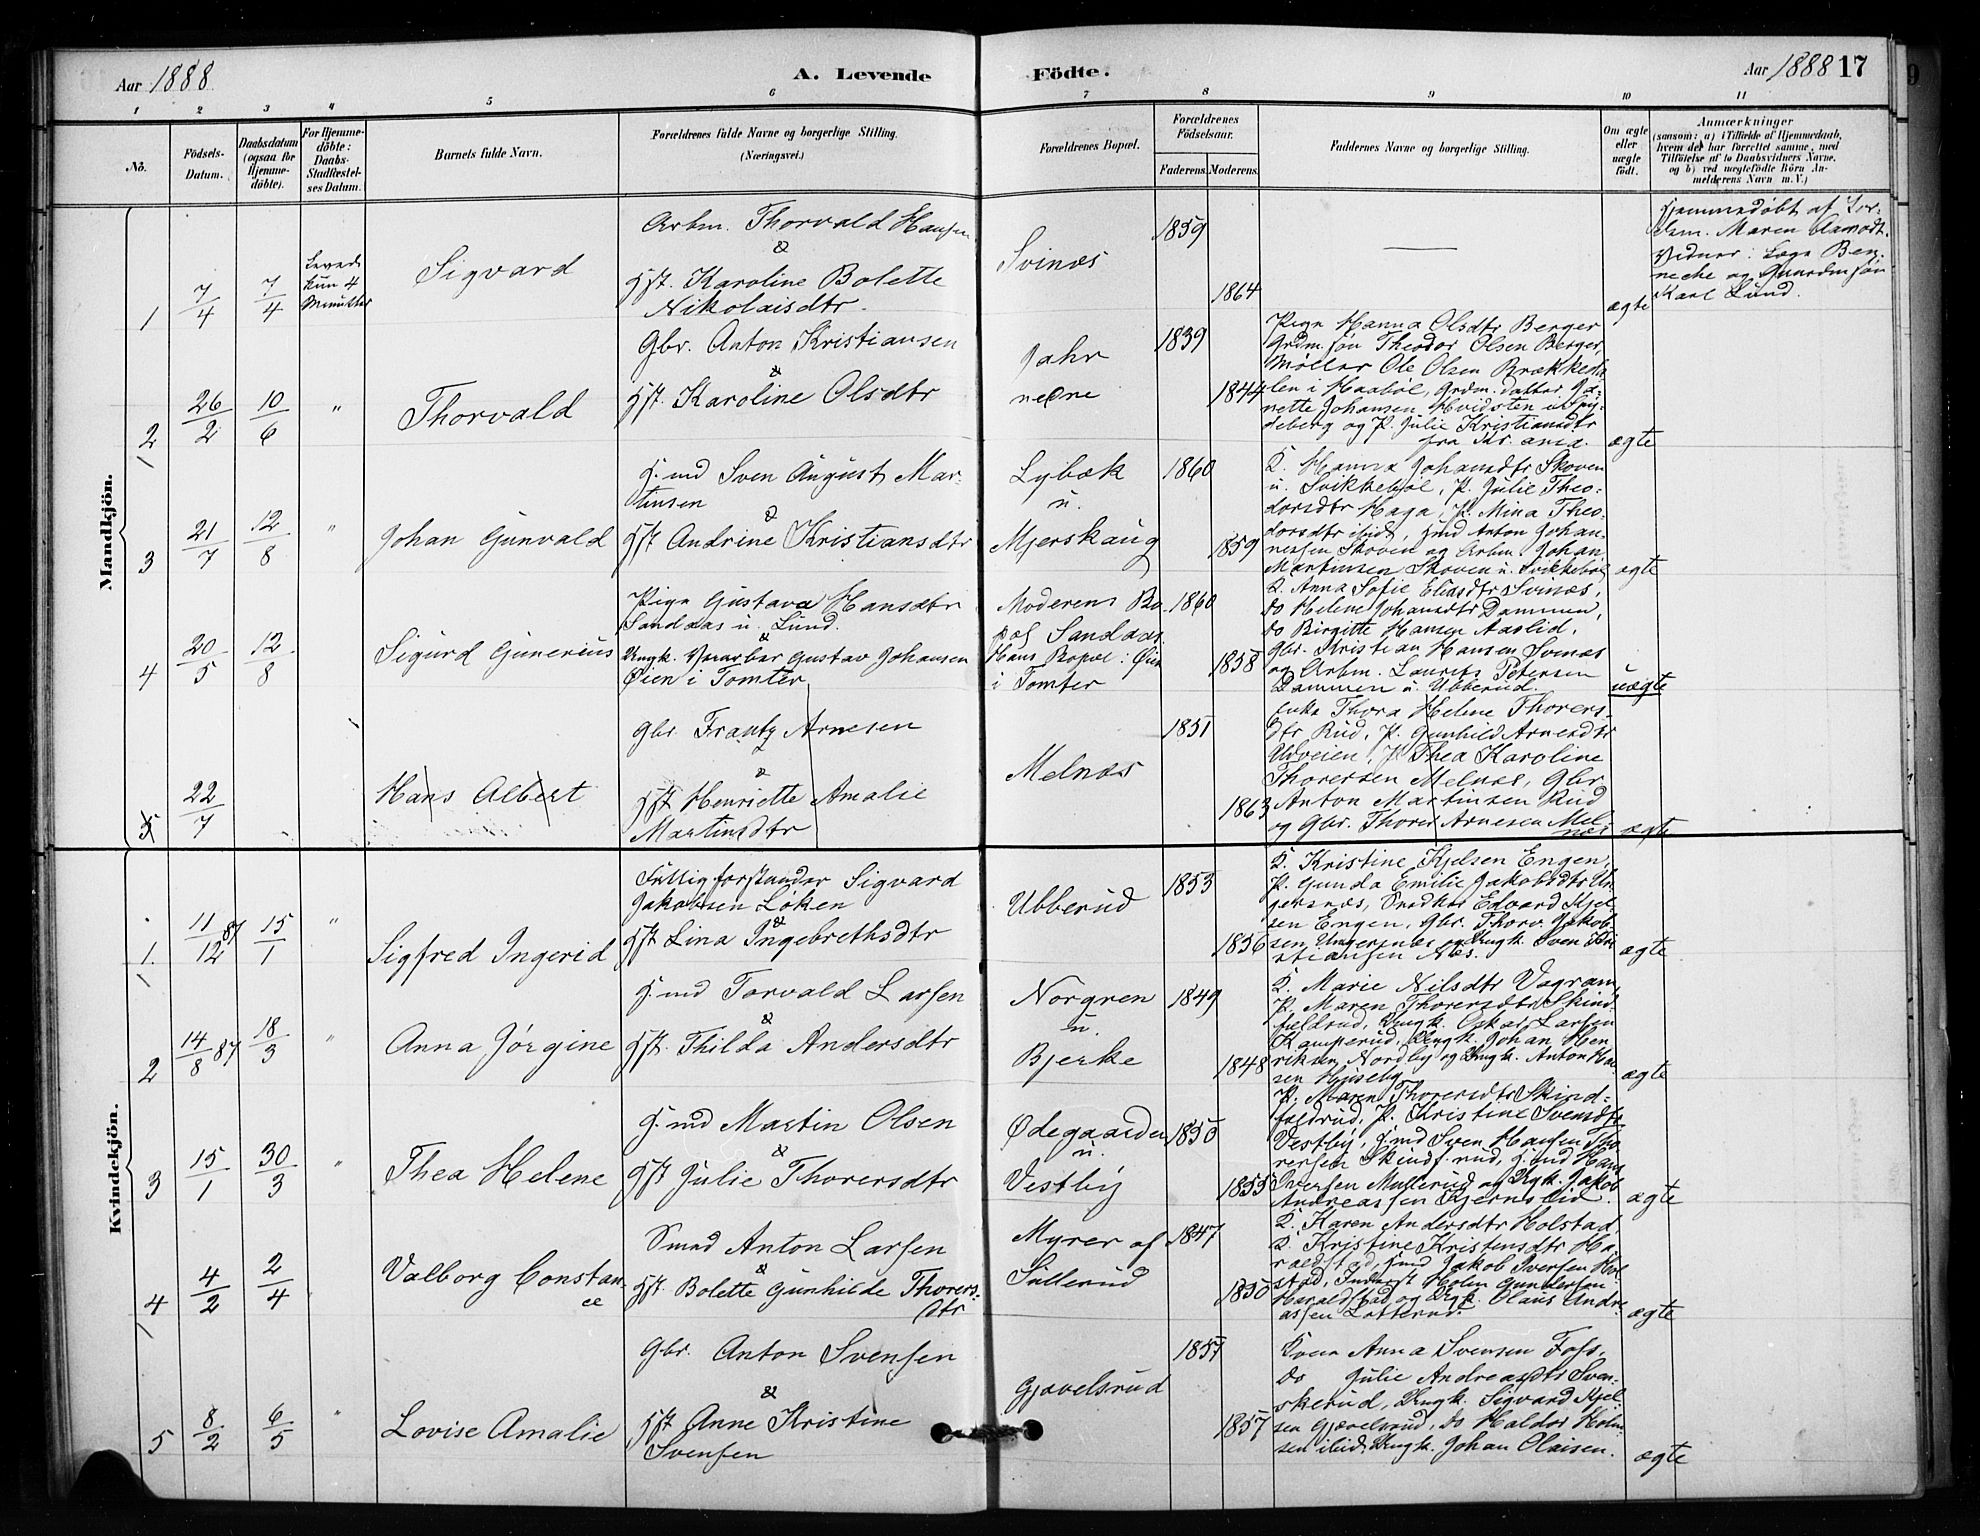 Aar 1888.
A. Levende
Födte.
Aar 1888 17
1 2 3 4 5 6 7 8 9 10 11
No.
Födsels-
Datum.
Daabsdatum
(ogsaa for
Hjemme-
döbte).
For Hjemme-
döbte:
Daabs-
Stadfæstel-
ses Datum.
Barnets fulde Navn.
Forældrenes fulde Navne og borgerlige Stilling.
(Næringsvei.)
Forældrenes Bopæl.
Forældrenes
Födselsaar.
Faderens.
Moderens.
Faddernes Navne og borgerlige Stilling.
Om ægte
eller
uægte
födt.
Anmærkninger
(saasom: a) i Tilfælde af Hjemmedaab,
hvem der har forrettet samme, med
Tilföielse af to Daabsvidners Navne,
og b) ved uægtefödte Börn An-
melderens Navn m. V.)
Mandkjön.
1
7/4
7/4
Leved
kun 4
Minutter
Sigvard
Arbm. Thorvald Hansen
&
Hst. Karoline Bolette
Nikolaisdtr.
Svinæs
1859
1864
ægte
Hjemmedøbt af Jor-
dm. Maren Aamodt.
Vidner: Lage Ben-
neche og Gaardmsøn
Karl Lund.
2
26/2
10/6
"
Thorvald
Gbr. Anton Kristiansen
&
Hst. Karoline Olsdtr
Jahr
nedre
1839
1844
Pige Hanna Olsdtr Berger
Grdm. søn Theodor Olsen Berger,
Møller Ole Olsen Brækkeda-
len i Haabøl, Grdm. datter Ja-
nette Johansen Hvidsten i Spy-
deberg og P. Julie Kristiansdtr
fra Kr. ania.
ægte
3
21/7
12/8
"
Johan Gunvald
H. md Sven August Mar-
tinsen
&
Hst Andrine Kristiansdtr
Lybæk
u.
Mjerskaug
1860
1859
K. Hanna Johansdtr Skoven
u. Svikkebøl, P. Julie Theo-
dorsdtr Haga, P. Mina Theo-
dorsdtr ibid, Hmd Anton Johan-
nessen Skoven og Arbm. Johan
Martinsen Skoven u. Svikkebøl
ægte
4
20/5
12/8
Sigurd Gunerius
Pige Gustava Hansdtr
Sandaas u. Lund.
&
Ungk. Gustav Johansen
Øien i Tomter
Moderens Bo-
pæl Sandaas
Hans Bopæl: Øien
i Tomter
1860
1858
K. Anna Sofie Eliasdtr Svinæs,
do Helene Johansdtr Dammen,
do Birgitte Hansen Aaslid,
Gbr. Kristian Hansen Svinæs
og Arbm. Laurits Petersen
Dammen u. Ubberud.
uægte
5
22/7
Hans Albert
Gbr Frantz Arnesen
&
Hst Henriette Amalie
Martinsdtr
Melnæs
1851
1863
Enke Thora Helene Thorers-
dtr Rud, P. Gunhild Arnesdtr
Udveien, P Thea Karoline
Thoresen Melnæs, Gbr
Anton Martinsen Rud
og Gbr. Thorer Arnesen Mel-
næs
ægte
Kvindekjön.
1.
11/12 87
15/1
"
Sigfred Ingerid
Fattigforstander Sigvard
Jakobsen Løken
&
Hst Lina Ingebrethsdtr
Ubberud
1853
1856
K. Kristine Kjelsen Engen,
P. Gunda Emilie Jakobsdtr Un-
gersnæs, Snedker Edvard Kjel-
sen Engen, Gbr. Thorv. Jakob-
sen Ungersnæs og Ungk. Sven Kri-
stiansen Næs.
ægte
2
14/8 87
18/3
"
Anna Jørgine
H. md Torvald Larsen
&
Hst. Thilda Andersdtr
Norgren
u.
Bjerke
1849
1848
K. Marie Nilsdtr Vagram,
P. Maren Thorersdtr Skind-
fældrud, Ungk. Oskar Larsen
Kamperud, Ungk. Johan Hen-
riksen Nordby og Ungk. Anton Han-
sen Huseby
ægte
3
15/1
30/3
"
Thea Helene
H. md Martin Olsen
&
Hst Julie Thorersdtr
Ødegaarden
u.
Vestby
1850
1855
P. Maren Thorersdtr Skind-
fældrud, P. Kristine Svensdtr
Vestby, Hmd Sven Hansen Tho-
rersen Skindf.rud, Hmd Hans
Iversen Mullerud og Ungk. Jakob
Andreassen Kjernslid.
ægte
4
4/2
2/4
Valborg Constan-
ce
Smed Anton Larsen
&
Hst. Bolette Gunhilde Thorers-
dtr
Myrer af
Sullerud
1847
1850
K. Karen Andersdtr Holstad
K. Kristine Kristensdtr Ha-
raldstad, Hmd Jakob Iversen Hol-
stad, Holm Gundersen
Haraldstad og Ungk. Olaus Andre-
assen Lotterud.
ægte
5
8/2
6/5
"
Lovise Amalie
Gbr. Anton Svensen
&
Hst Anne Kristine
Svensen
Gjævelsrud
1857
1857
Kone Anna Svensen Foss,
do Julie Andreasdtr Sven-
skerud, Ungk. Sigvard Kjel-
sen Gjævelsrud, do Haldor Holm-
sen ibid, Ungk. Johan Olaisen.
ægte